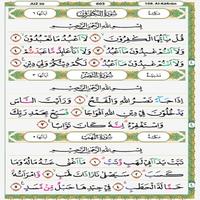 JUZ 30 603 109. Al-Kafirun
مكية سُورَةُ الْكَافِرُونَ آياتها
بِسْمِ اللَّهِ الرَّحْمَٰنِ الرَّحِيمِ
قُلْ يَا أَيُّهَا الْكَافِرُونَ لَا أَعْبُدُ مَا تَعْبُدُونَ
وَلَا أَنْتُمْ عَابِدُونَ مَا أَعْبُدُ وَلَا أَنَا عَابِدٌ مَا عَبَدْتُمْ
وَلَا أَنْتُمْ عَابِدُونَ مَا أَعْبُدُ لَكُمْ دِينُكُمْ وَلِيَ دِينِ
مدنية سُورَةُ النَّصْرِ آياتها
بِسْمِ اللَّهِ الرَّحْمَٰنِ الرَّحِيمِ
إِذَا جَاءَ نَصْرُ اللَّهِ وَالْفَتْحُ وَرَأَيْتَ النَّاسَ
يَدْخُلُونَ فِي دِينِ اللَّهِ أَفْوَاجًا فَسَبِّحْ بِحَمْدِ رَبِّكَ
وَاسْتَغْفِرْهُ إِنَّهُ كَانَ تَوَّابًا
مكية سُورَةُ اللَّهَبِ آياتها
بِسْمِ اللَّهِ الرَّحْمَٰنِ الرَّحِيمِ
تَبَّتْ يَدَا أَبِي لَهَبٍ وَتَبَّ مَا أَغْنَىٰ عَنْهُ مَالُهُ وَمَا
حَمَّالَةَ الْحَطَبِ فِي جِيدِهَا حَبْلٌ مِنْ مَسَدٍ